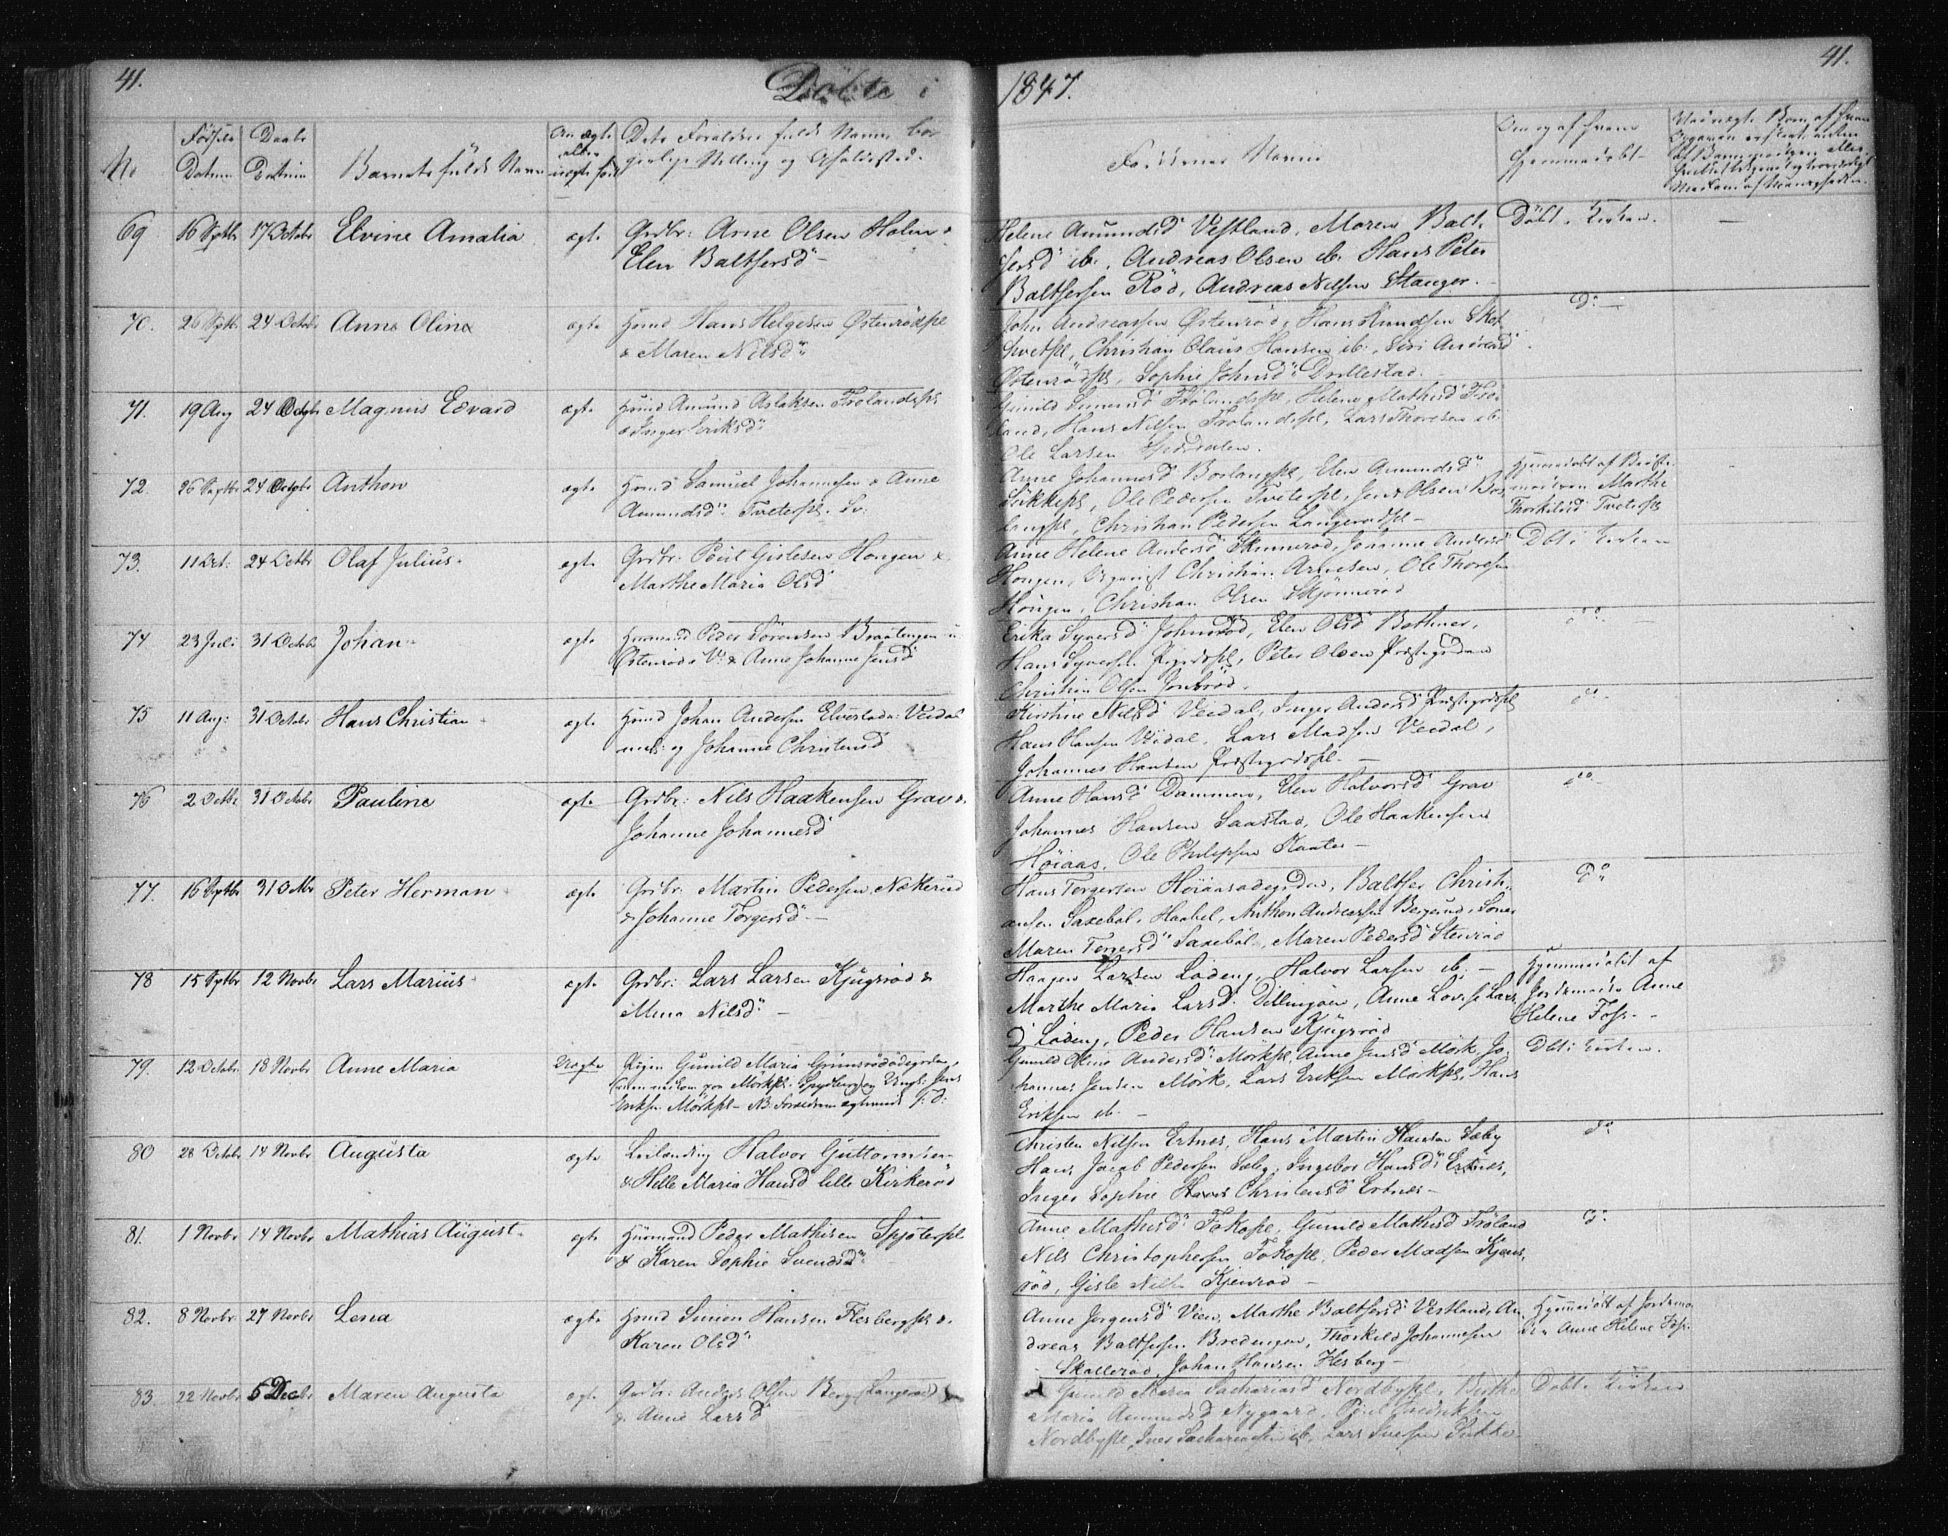 41.
Døbte i
1847.
41.
No
Fødsels Datum
Daabs Datum
Barnets fulde Navn
Om ægte eller uægte født
Dets Forældres fulde Navne bor
gerlige Stilling og Opholdssted.
Faddernes Navne
Om og af hvem
hjemmedøbt
69
16 Septbr
17 Octobr
Elvine Amalia
ægte
Grdbr: Arne Olsen Holm &
Elen Baltsersd
Helene Amundsd Vestland, Maren Balt-
sersd ib., Andreas Olsen ib. Hans Peter
Baltsersen Röd, Andreas Nilsen Stanger.
Døbt i Kirken.
70.
26 Septbr
24 Octobr
Anne Oline
ægte
Hsmd Hans Helgesen Østenrödspl
& Maren Nilsd
John Andreassen Østenröd, Hans Knudsen
Christian Olaus Hansen ib., Siri
Østenrödspl, Sophie Johnsd Drillestad.
Do
71.
19 Aug
24 Octbr
Magnus Edvard
ægte
Hsmd Amund Aslaksen Frolandspl
& Inger Eriksd
Gunild Frolandspl, Helene Mathisd Fro-
land, Hans Nilsen Frolandspl, Lars Thoresen ib.
Ole Larsen
72.
26 Septbr
24 Octbr
Anthon
ægte
Hsmd Samuel Johannesen & Anne
Amundsd Tveterspl.
Anne Johannesd Borlangspl, Elen Amundsd
Sikkepl, Ole Pedersen Tveterspl, Jens Olsen Bor-
langspl, Christian Pedersen Langerödspl
Hjemmedøbt af
Marthe
Thorkilsd Tveterspl
73.
11 Oct:
24 Octbr
Olaf Julius
ægte
Grdbr: Poul Gislesen Hongen &
Marthe Maria Olsd
Anne Helene Andersd Skinneröd, Johanne Andersd
Hongen, Christian Arnesen, Ole Thoresen
Hongen, Christian Olsen Skjönneröd
Dbt i Kirken
74
23 Juli
31 Octobr
Johan
ægte
Husmand Peder Sörensen Braatengen u.
Østenröd & Anne Johanne Jensd
Erika Syversd Johnsröd, Elen Olsd Bothner,
Hans Syversen Prgrdspl, Peter Olsen Præstegrden
Christian Olsen
do
75
11 Aug:
31 Octobr
Hans Christian
ægte
Hsmd Johan Andersen Elvestad: Veidal
og Johanne Christensd
Kirstine Nilsd Veidal, Inger Andersd Præstegrdspl
Hans Hansen Veidal, Lars Madsen Veidal,
Johannes Hansen Præstegrdspl.
do
76
2 Octbr
31 Octobr
Pauline
ægte
Grdbr: Nils Haakensen Grav &
Johanne Johannesd
Anne Hansd Dammen, Elen Halvorsd Grav
Johannes Hansen Saastad, Ole Haakensen
Höiaas, Ole Philipsen Kaates
do
77.
16 Septbr
31 Octbr
Peter Herman
ægte
Grdbr: Martin Pedersen Nækeröd
& Johanne Torgersd
Hans Torgersen Höiaasödegrden, Baltser Christi-
ansen Saxebøl, Anthon Andreassen
Maren Torgersd Saxebøl, Maren Pedersd Stenröd
Do
78
15 Septbr
12 Novbr
Lars Marius
ægte
Grdbr: Lars Larsen Kjugsröd &
Mina Nilsd
Haagen Larsen Lödeng, Halvor Larsen ib.
Marthe Maria Larsd Dillingöen, Anne Lovise Lars
d Lödeng, Peder Hansen Kjugsröd
Hjemmedøbt af
Jordemoder Anne
Helene Foss.
79.
12 Octobr
13 Novbr
Anne Maria
Uægte
Pigen Gunild Maria Grimsrödödegrden,
Ungk: Jens
Eriksen Mörkspl
Gunild Andersd Mörkspl, Anne Jensd Mörk, Jo-
hannes Jensen Mörk, Lars Eriksen Mörkspl, Hans
Eriksen ib.
Dbt i Kirken.
80
28 Octobr
14 Novbr
Augusta
ægte
Leilending Halvor Guttormsen
& Helle Maria Hansd lille Kirkeröd
Christen Nilsen Ertnes, Hans Martin Hansen Sæby
Hans Jacob Pedersen Sæby, Ingebor Hansd Ertnes,
Inger Sophie Christensd Ertnes
do
81.
1 Novbr
14 Novbr
Mathias August
ægte
Husmand Peder Mathisen Spjöterspl
& Karen Sophie Svendsd
Anne Mathisd Fokspl, Gunild Mathisd Fröland
Nils Christophersen Fokspl, Peder Madsen Kjens-
röd, Gisle Nilsen Kjensröd
Do
82.
8 Novbr
27 Novbr
Lena
ægte
Hsmd Simon Hansen Flesbergspl &
Karen Olsd
Anne Jörgensd Veen, Marthe Baltsersd Vestland, An-
dreas Baltsersen Bredengen, Thorkild Johannesen
Skalleröd, Johan Hansen Hesberg
Hjemmedøbt af Jordemo-
der Anne Helene Foss.
83.
22 Novbr
5 Decbr
Maren Augusta
ægte
Grdbr: Anders Olsen Berg (Langeröd)
& Anne Larsd
Gunild Maria Sachariasd Nordbyspl, Berthe
Maria Amundsd Nygaard, Poul Fredriksen
Nordbyspl, Iver Sachariassen ib, Lars Iversen Sikke
Døbt i Kirken